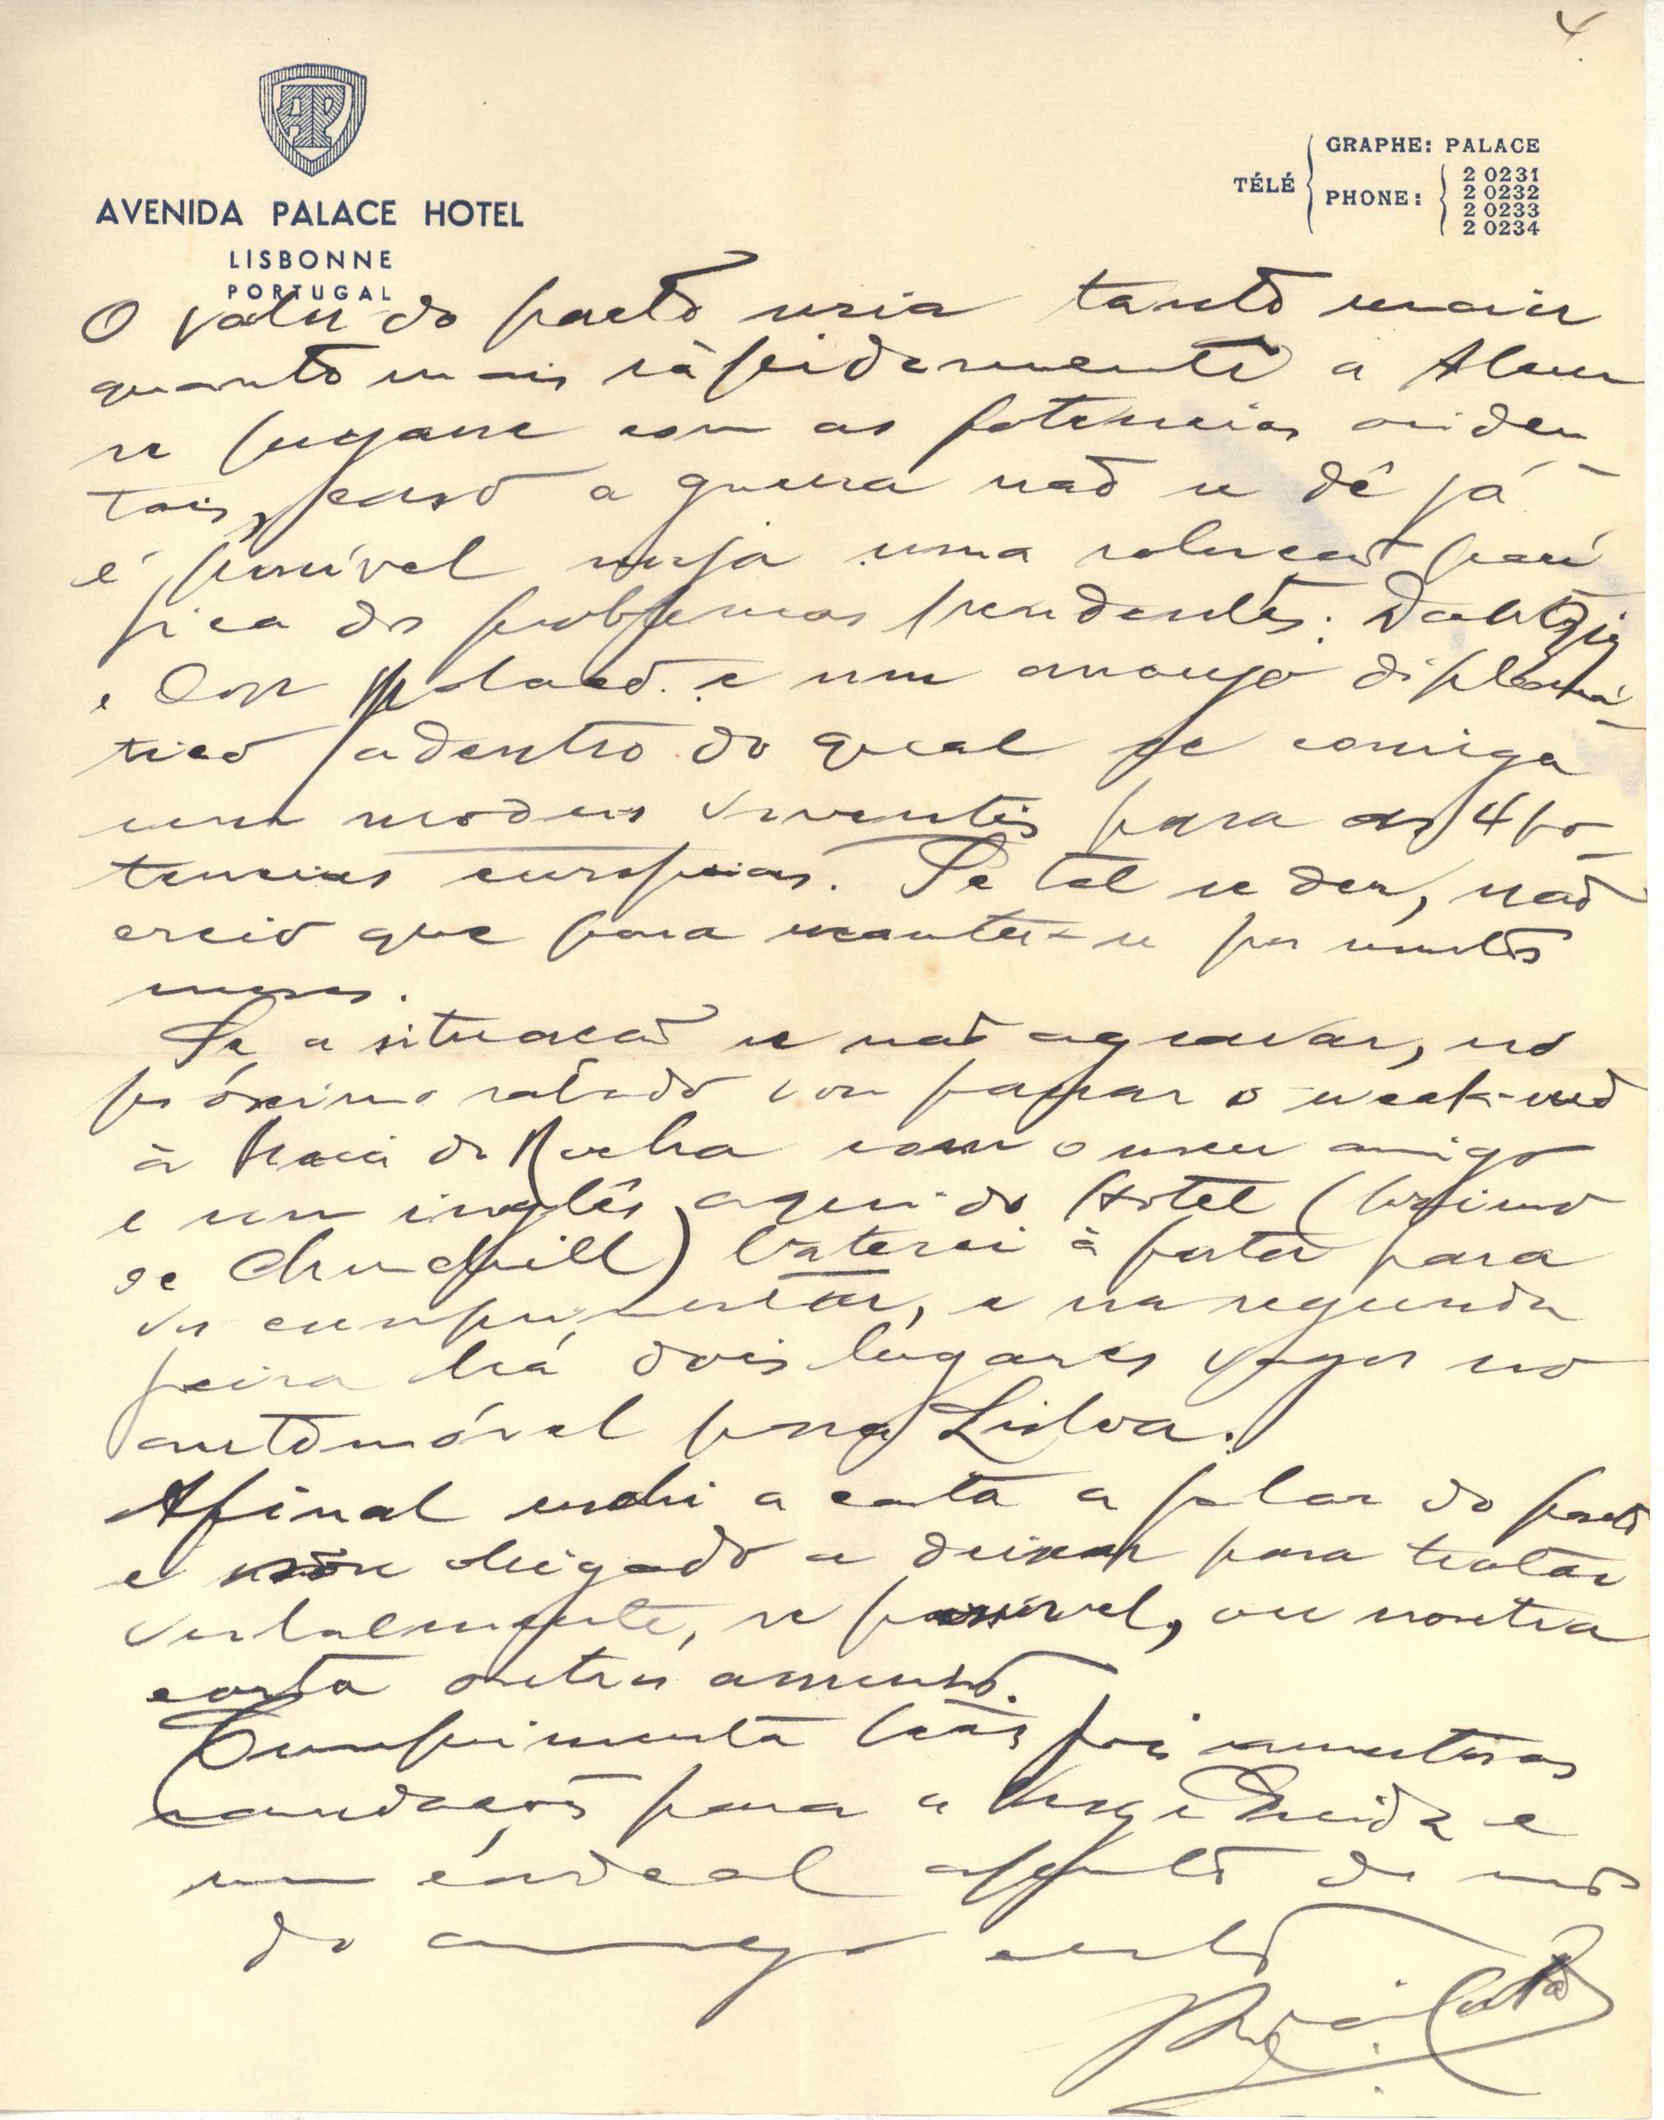 4
AP
AVENIDA PALACE HOTEL
LISBONNE
PORTUGAL
TÉLÉ
GRAPHE: PALACE
PHONE:
2 0231
2 0232
2 0233
2 0234
O valor do pacto seria tanto maior
quanto mais ràpidamente a Alem
se pegasse com as potencias ociden
tais, caso a guerra não se dê já
é possível surja uma solucão pací
fica dos problemas pendentes: Dantzig
e Corr polaco. e um arranjo diplomá-
tico adentro do qual se consiga
um modus viventis para as 4 po-
tencias europeias. Se tal se der, não
creio que para manter-se por muitos
meses.
Se a situacão se não agravar, no
próximo sabado vou passar o week-end
à Praia da Rocha com o meu amigo
e um inglês aqui do Hotel (
de Churchill) baterei à porta para
vos cumprimentar, e na segunda
feira há dois lugares vagos no
automóvel para Lisboa.
Afinal enchi a carta a falar do pacto
e sou obrigado a deixar para tratar
verbalmente, se possível, ou noutra
carta outros assuntos.
Cumprimenta teus pais
saudações para a e
um cordeal de
do amigo certo